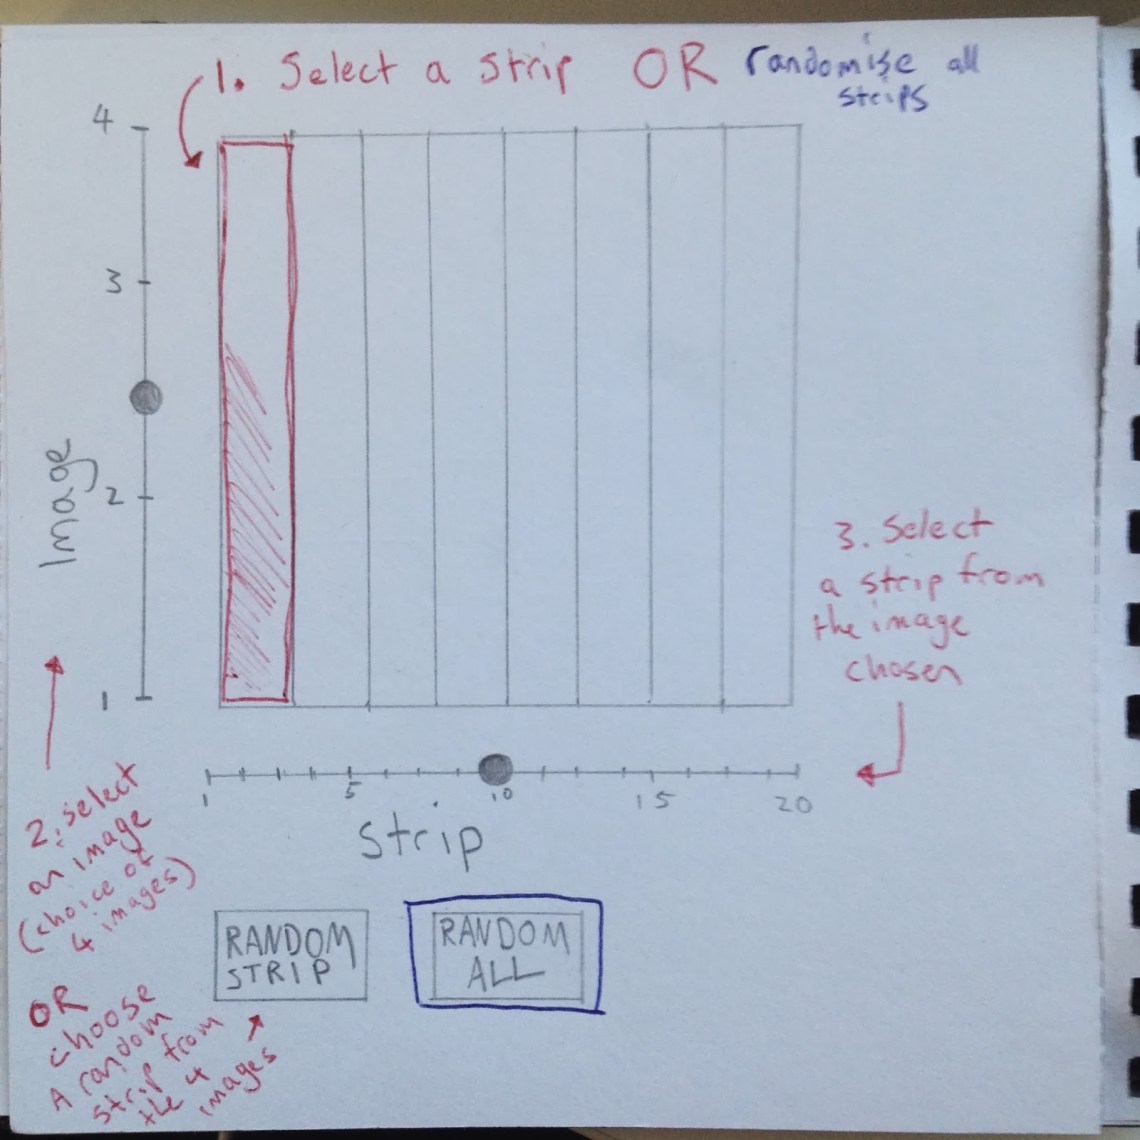 1. Select a strip OR randomise all
strips
4
3
2
1
Image
3. Select
a strip from
the image
chosen
1 5 10 15 20
Strip
2. select
an image
(choice of
4 images)
OR
choose
A random
strip from
the 4
images
RANDOM
STRIP
RANDOM
ALL